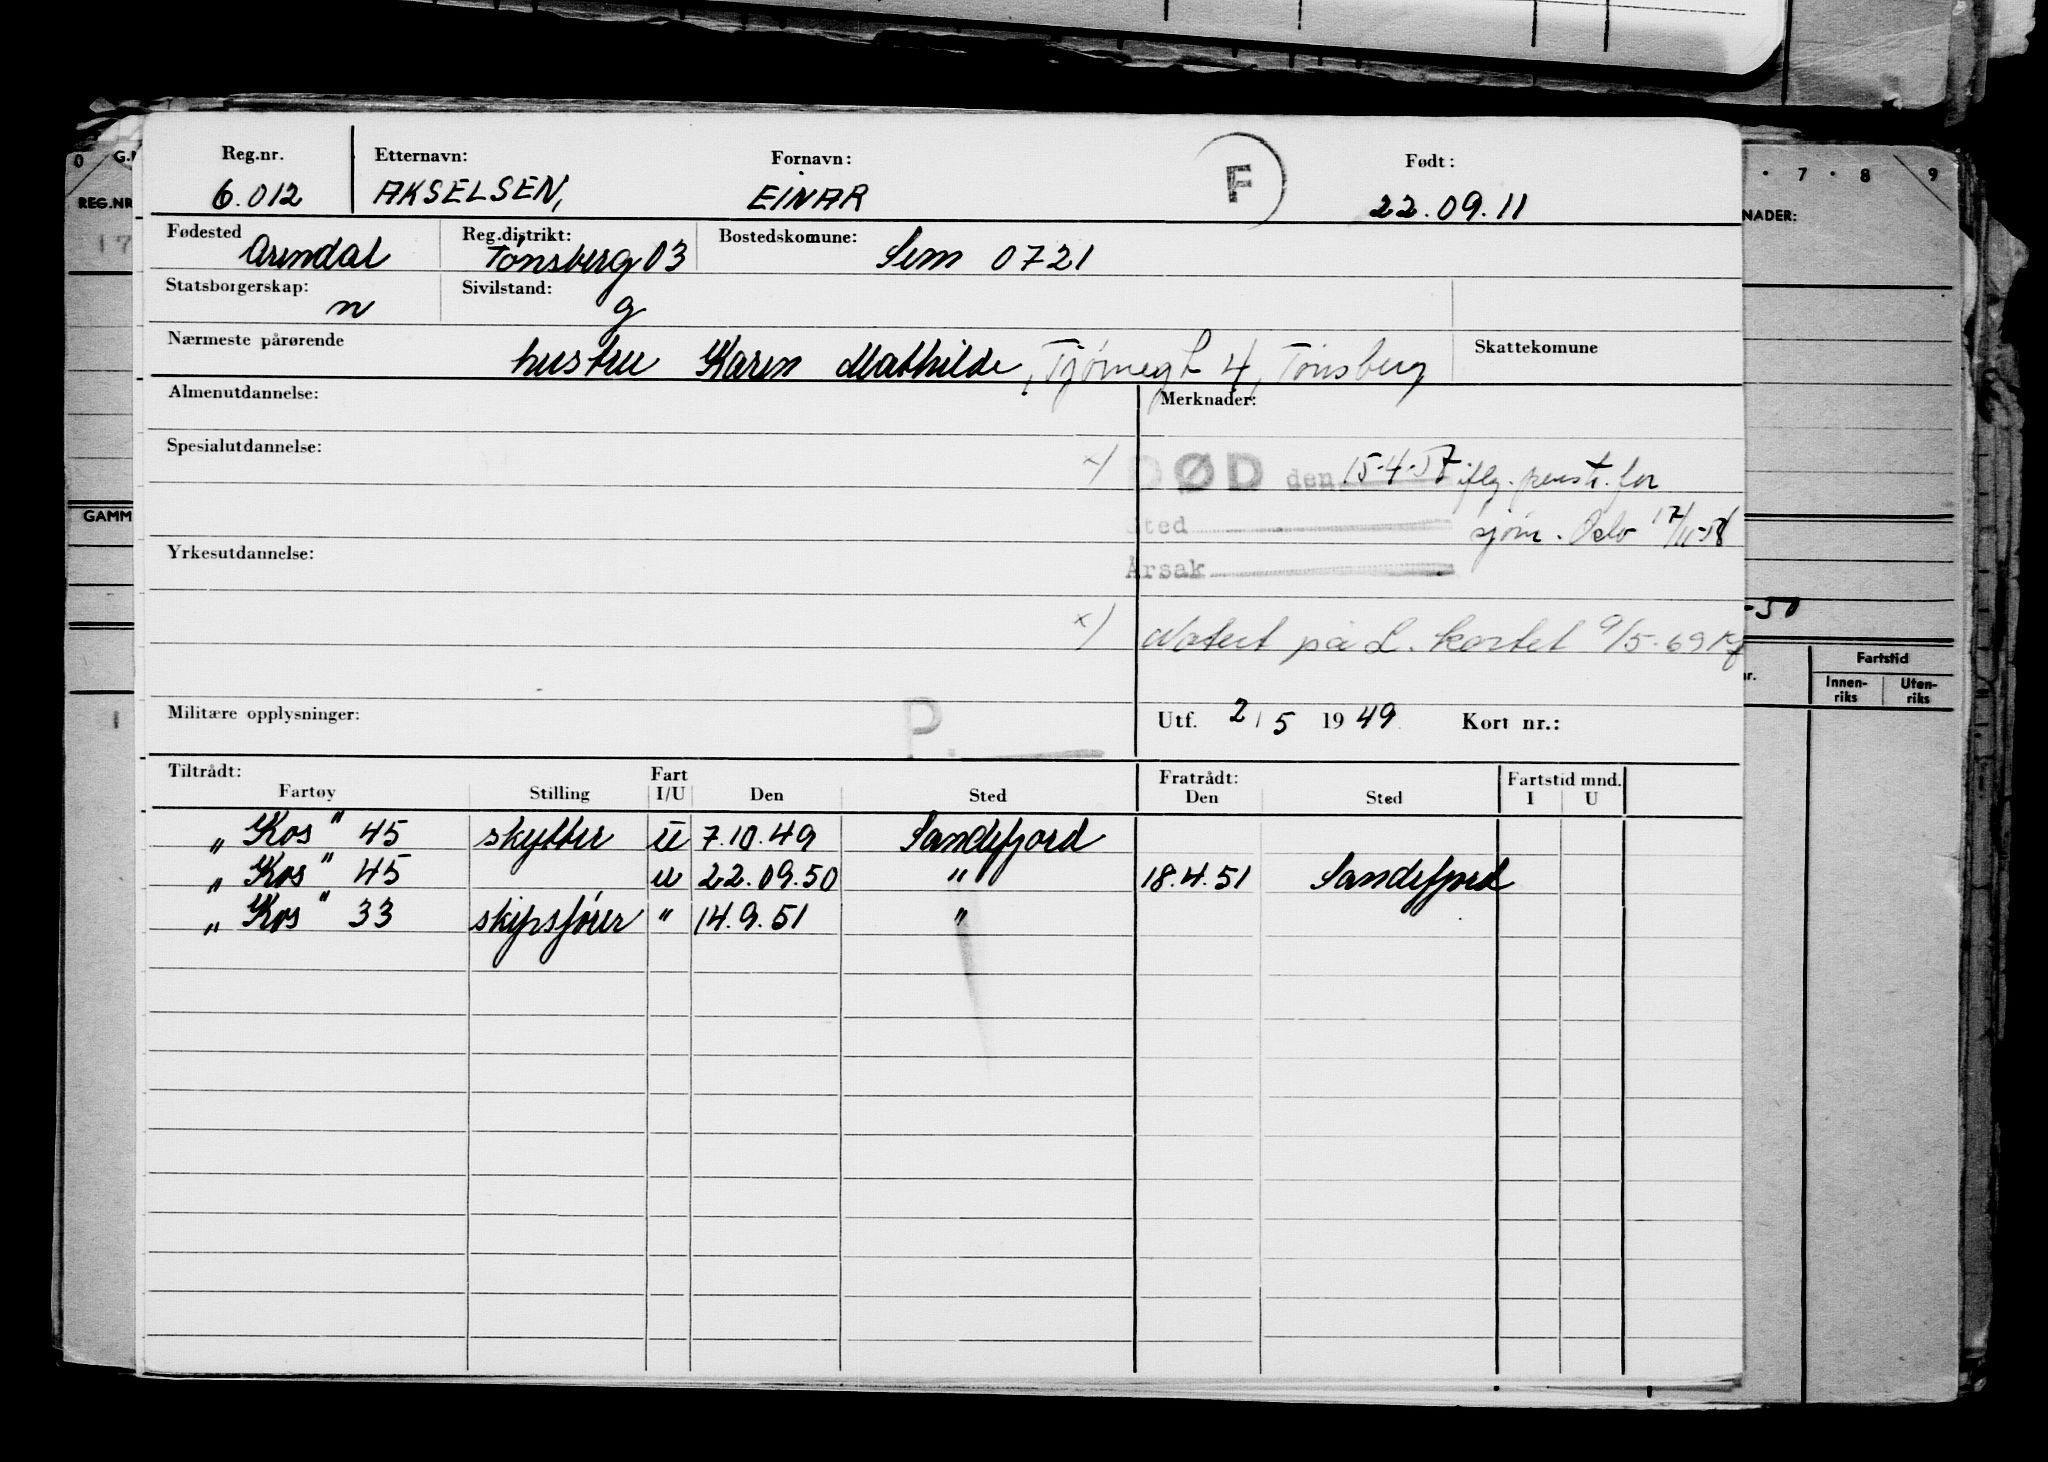 Reg.nr. Etternavn: Fornavn: F Født:
6.012 AKSELSEN, EINAR 22.09.11
Fødested Arendal Reg.distrikt: Tønsberg 03 Bostedskomune: Sem 0721
Statsborgerskap: n Sivilstand: g
Nærmeste pårørende hustru Karen Mathilde, Tjømegt 4, Tønsberg Skattekomune
Almenutdannelse: Merknader:
Spesialutdannelse: x) DØD den 15-4-57 iflg. pensj. for
Sted sjøm. Oslo 17/11-58
Yrkesutdannelse: Årsak
x) Notert på L. kortet 9/5-69
Militære opplysninger: P. Utf. 2/5 1949 Kort nr.:
Tiltrådt: Fart Fratrådt: Fartstid mnd.
Fartøy Stilling I/U Den Sted Den Sted I U
"Kos" 45 skytter u 7.10.49 Sandefjord
"Kos" 45 u 22.09.50 " 18.4.51 Sandefjord
"Kos" 33 skipsfører " 14.9.51 "
0
REG.NR
17
GAMM
1
7 8 9
NADER:
-50
nr. Fartstid
Innen-
riks Uten-
riks